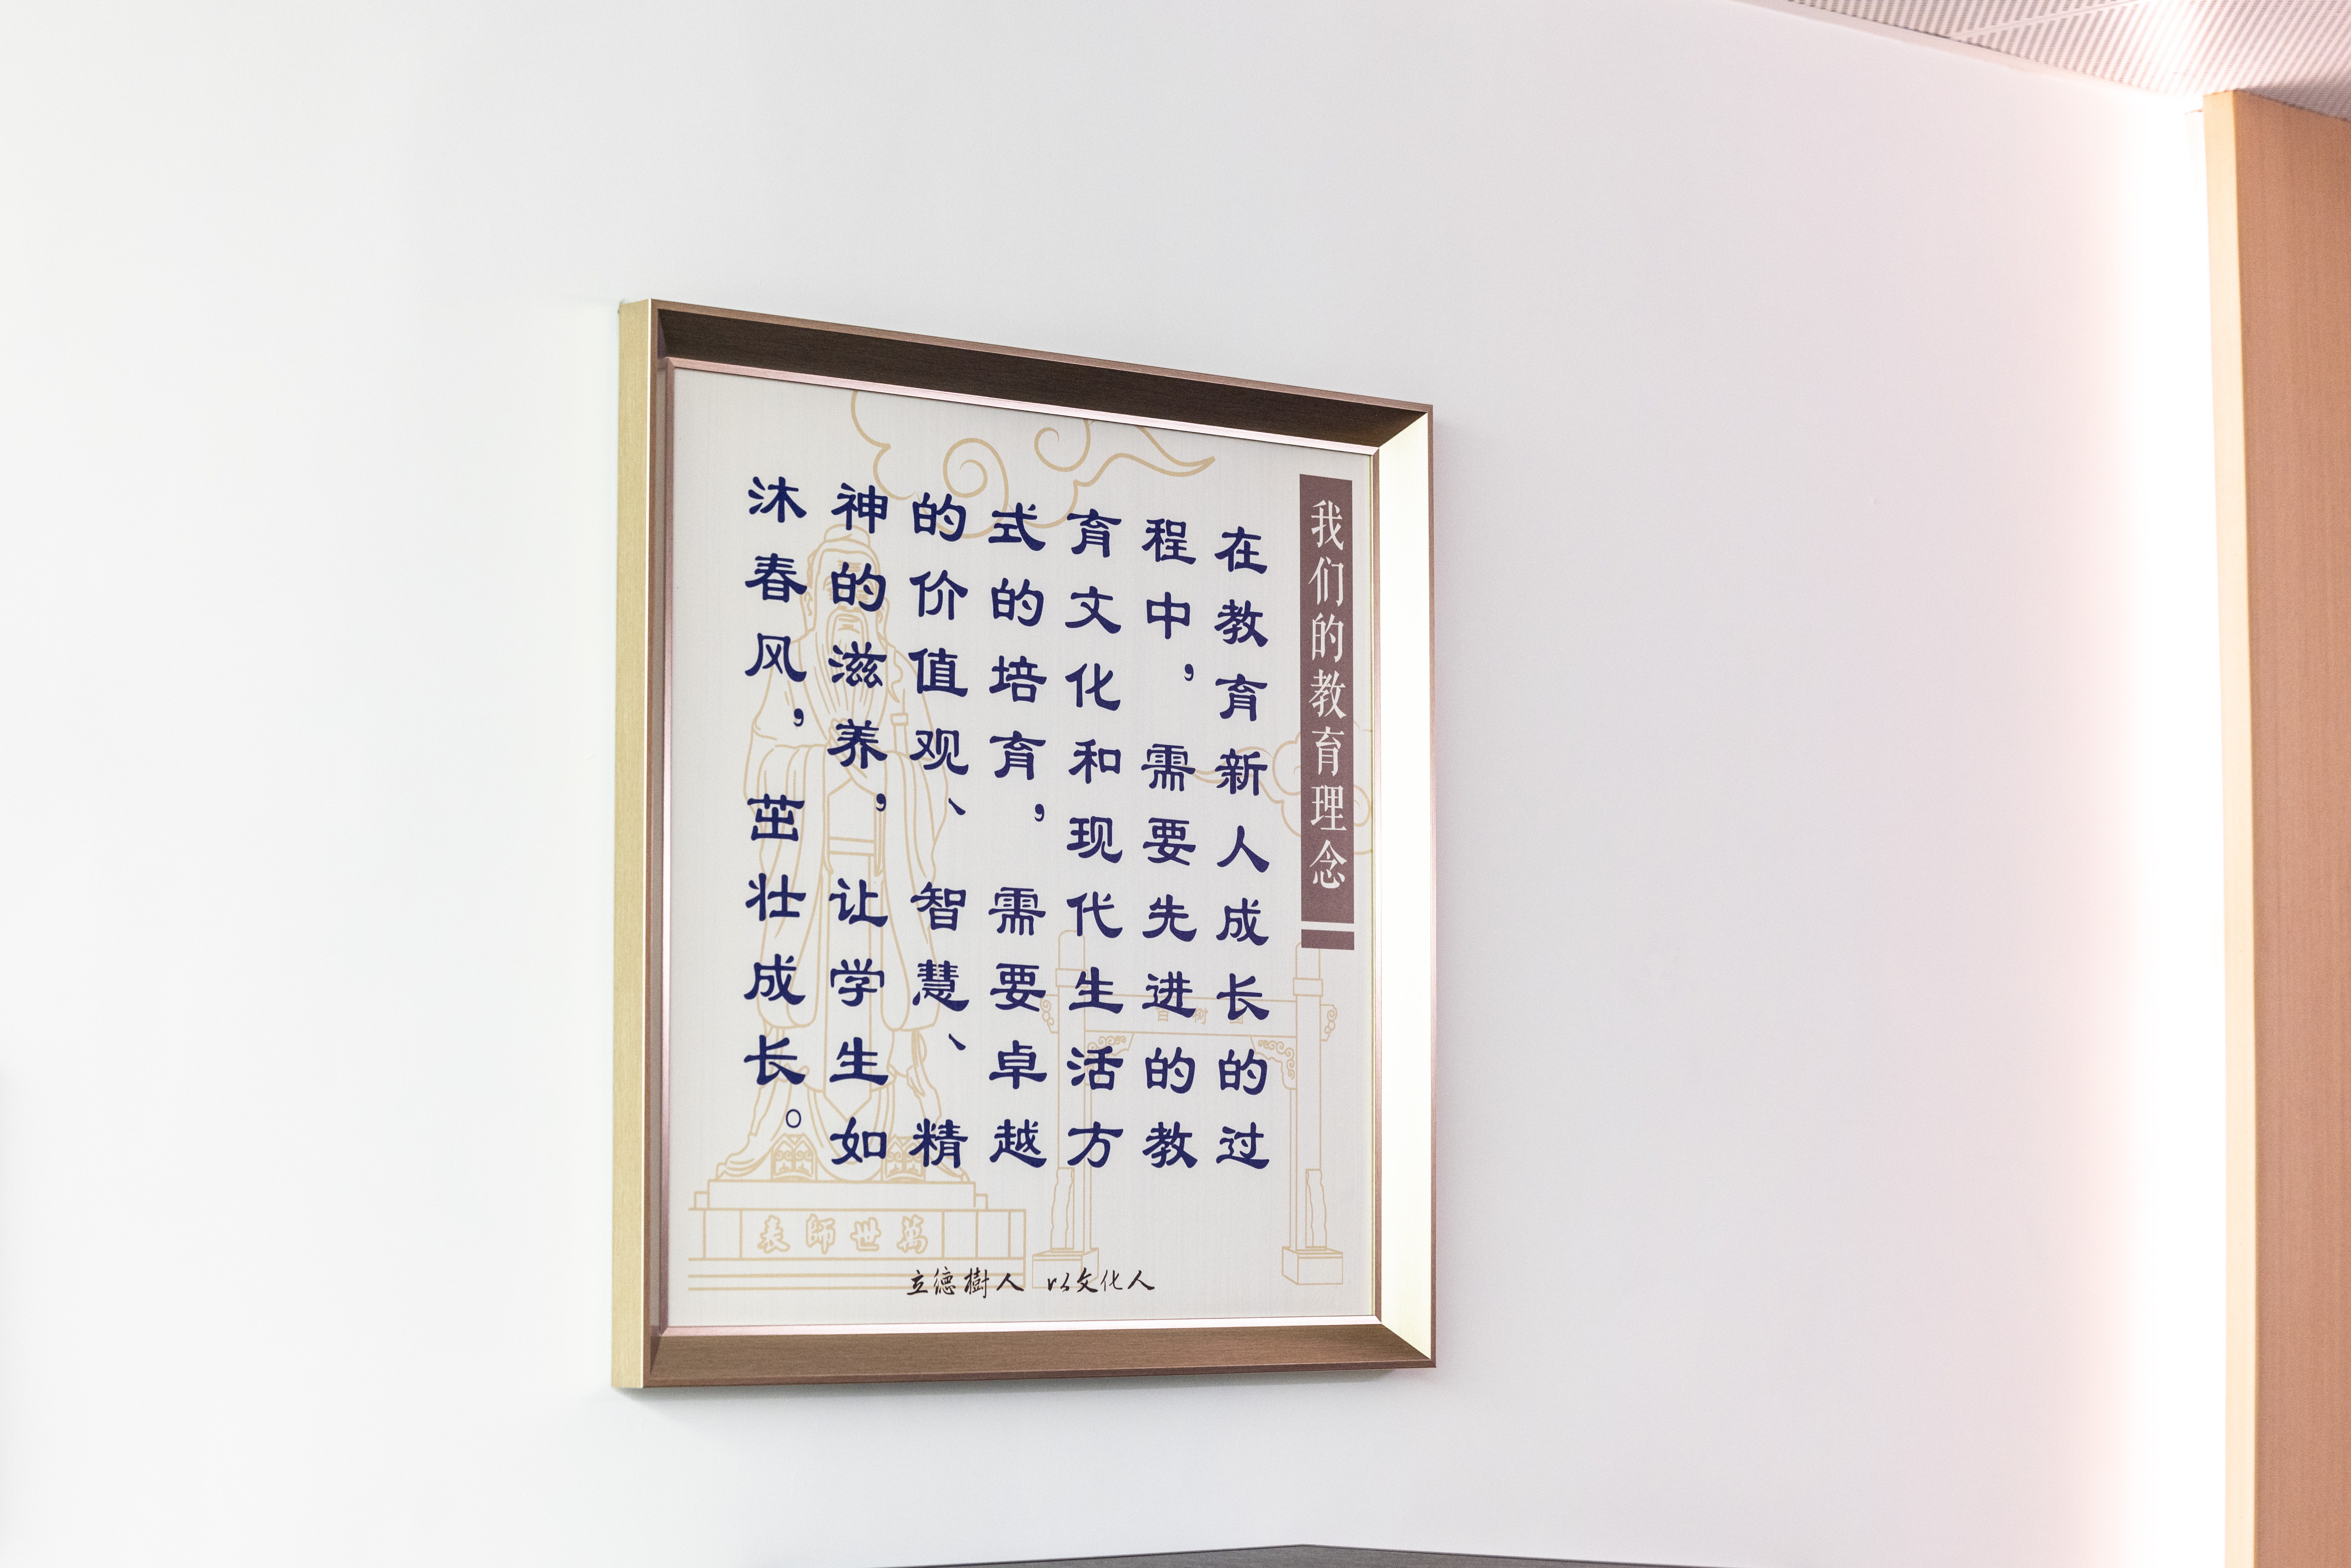 我们的教育理念
在教育新人成长的过
程中，需要先进的教
育文化和现代生活方
式的培育，需要卓越
的价值观、智慧、精
神的滋养，让学生如
沐春风，茁壮成长。
萬世師表
立德樹人 以文化人